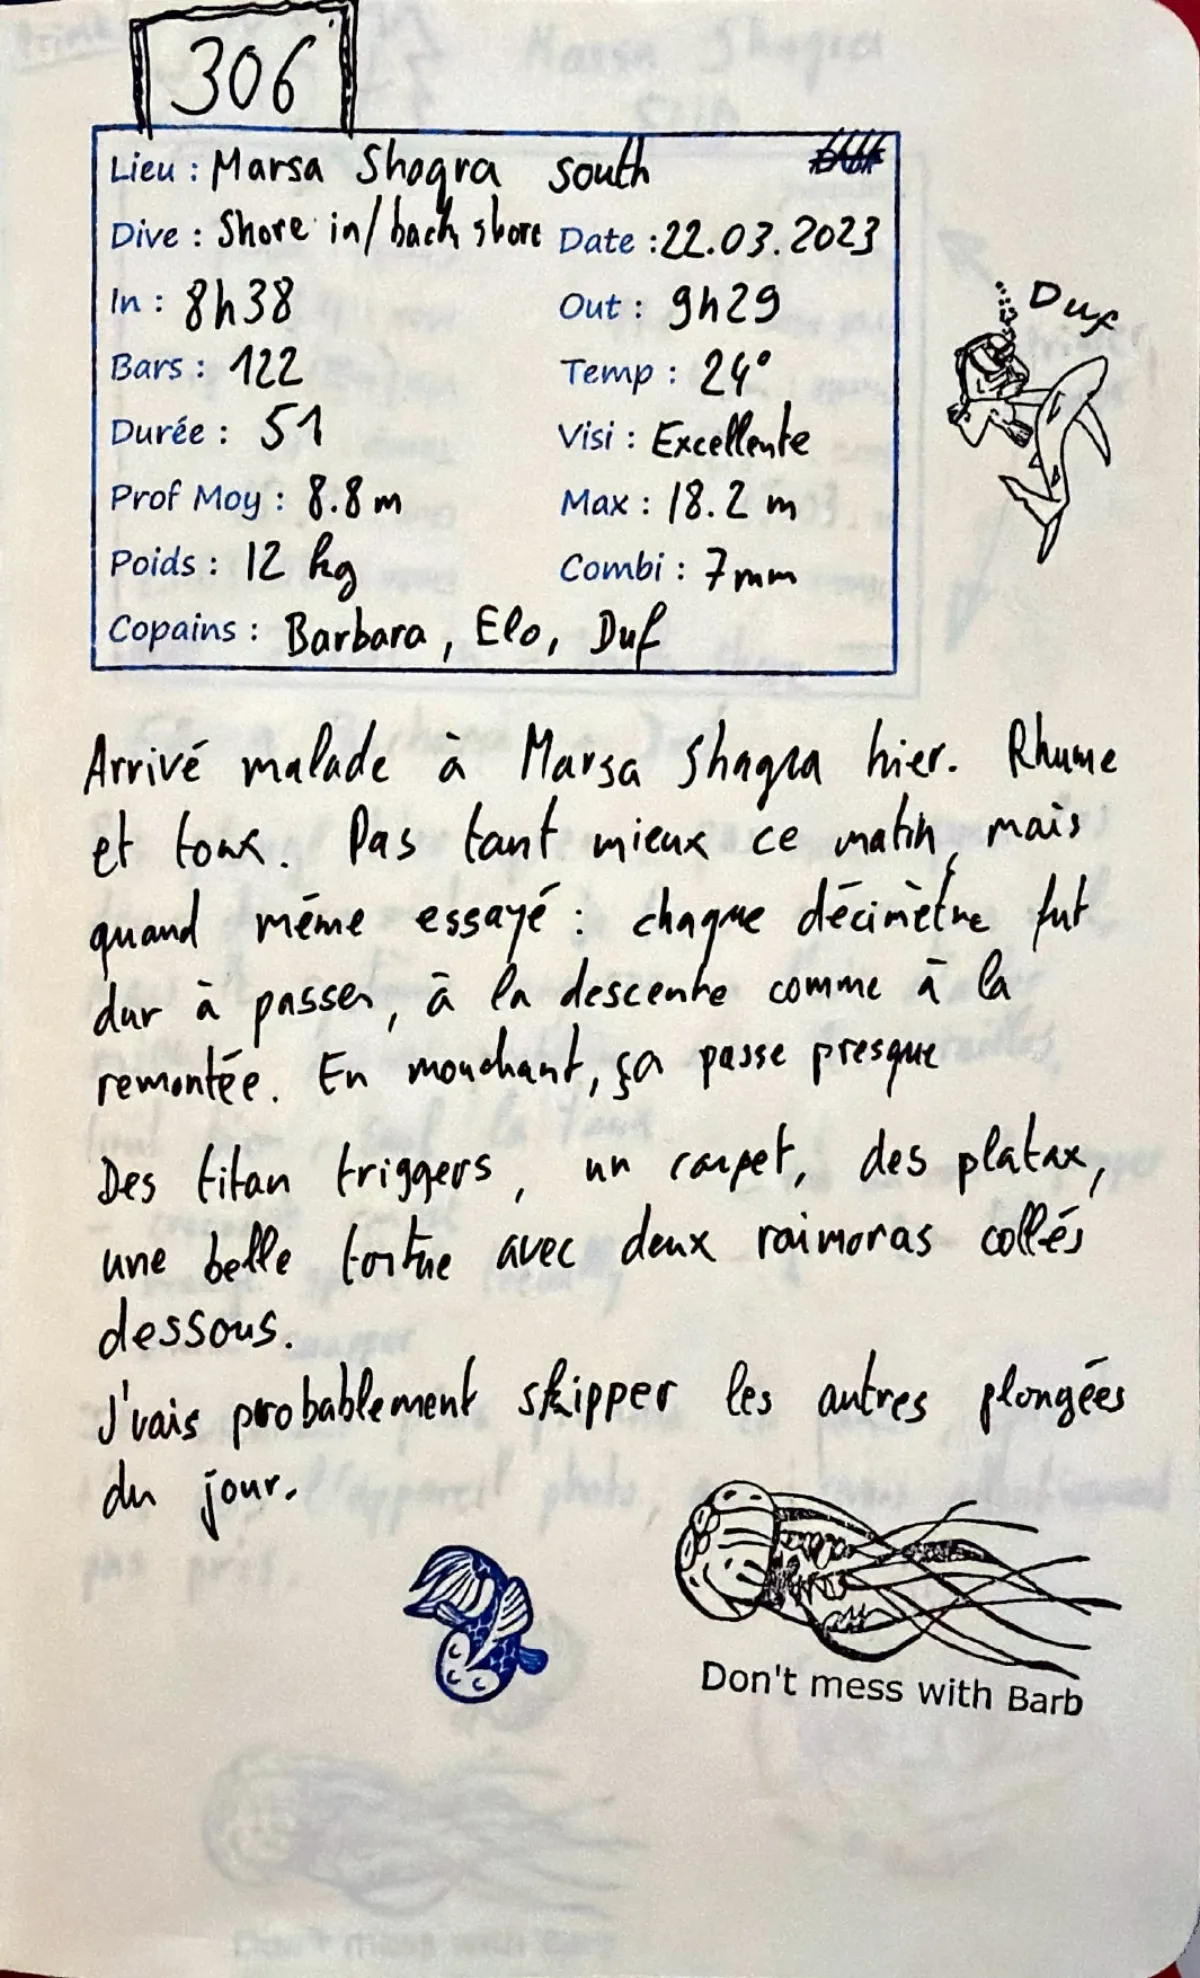 306
Lieu : Marsa Shagra south
Dive : Shore in/back shore Date : 22.03.2023
In : 8h38 Out : 9h29
Bars : 122 Temp : 24°
Durée : 51 Visi : Excellente
Prof Moy : 8.8 m Max : 18.2 m
Poids : 12 kg Combi : 7mm
Copains : Barbara, Elo, Duf
Duf
Arrivé malade à Marsa Shagra hier. Rhume
et toux. Pas tant mieux ce matin, mais
quand même essayé : chaque décimètre fut
dur à passer, à la descente comme à la
remontée. En mouchant, ça passe presque
Des titan triggers, un carpet, des platax,
une belle tortue avec deux raimoras collés
dessous.
J'vais probablement skipper les autres plongées
du jour.
Don't mess with Barb